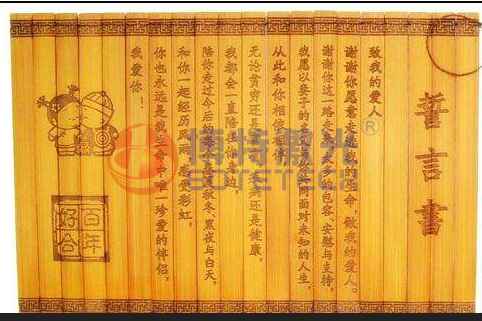 誓言書
致我的爱人
谢谢你愿意走进我的生命，做我的爱人。
谢谢你这一路走来太多的包容、安慰与支持，
我愿以妻子的名义与你共同面对未知的人生，
从此和你相依相伴，
无论贫穷还是还是健康，
我都会一直陪在你身边，
陪你走过今后的春夏秋冬、黑夜与白天，
和你一起经历风雨、感受彩虹，
你也永远是我生命中唯一珍爱的伴侣，
我爱你！
百年
好合
博特激光®
BOTETECH